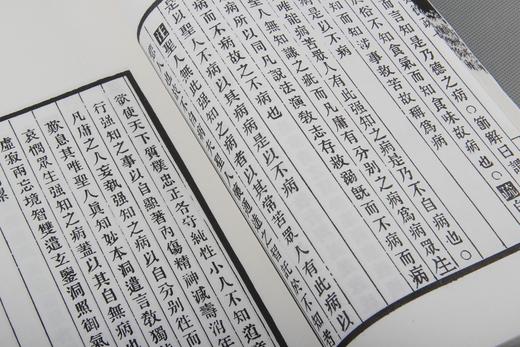 而言知是乃德之病也○節解曰謂
於俗不知食氣而知食味故病也○
知而知涉事故苦故稱為病
是以不病
唯能病苦眾人有此强知之病是乃不自病也○
人無知識之疵而凡庸有分別之病為病眾生
所以同凡說法演敎志存救溺既而不病而病
而不病故不病也
聖人不病以其病病是以不病
聖人無此强知之病者以其常苦眾人有此病以
欲使天下質樸忠正各守純性小人不知道意
行强知之事以自顯著內傷精神減壽消年
凡庸之人妄執强知之病以自分別徃而
歎息其唯聖人真知妙本洞遣言敎獨
哀憫眾生强知之病蓋以其自無病也
虛寂兩忘境智雙遣玄鑒洞照御氣